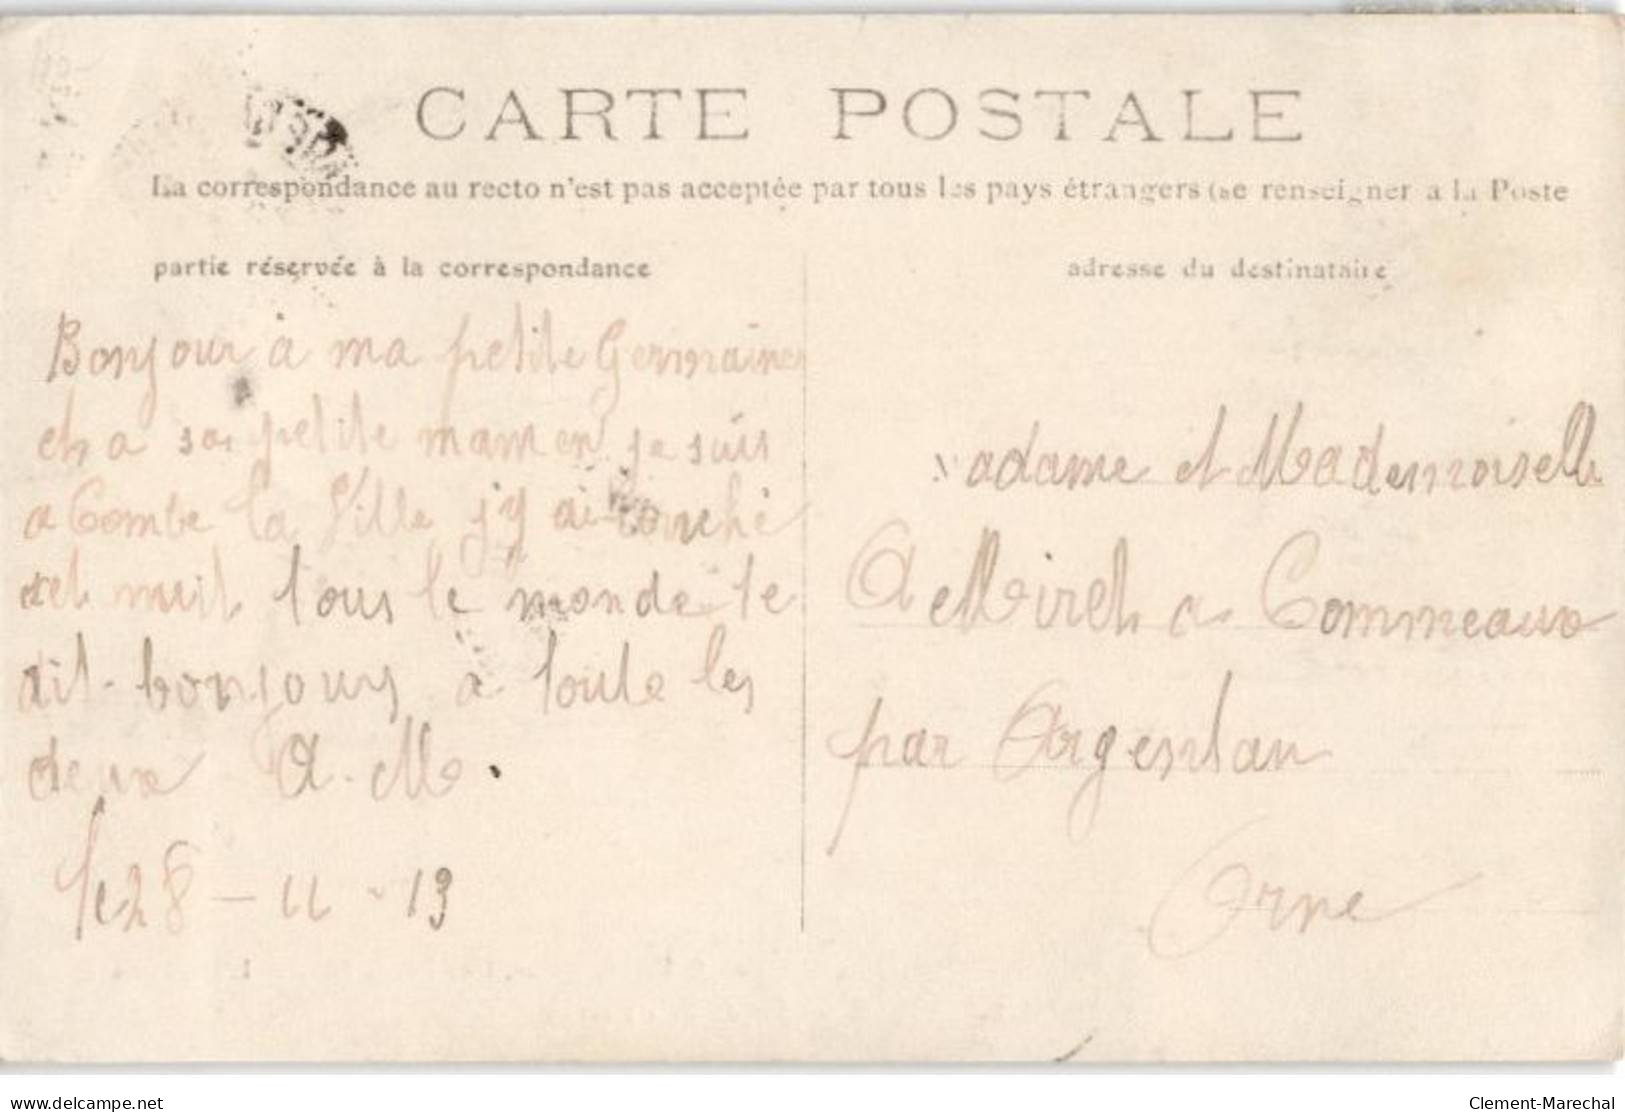 CARTE POSTALE
La correspondance au recto n'est pas acceptée par tous les pays étrangers (se renseigner a la Poste
partie réservée à la correspondance
adresse du destinataire
Bonjour à ma petite Germaine
et a sa petite maman je suis
a Combe la Ville j'y ai couché
cet nuit tous le monde te
dit bonjours a toute les
deux A. M.
le 28 - 11 - 13
adame et Mademoiselle
A Miret a Commeaux
par Argentan
Orne
www.delcampe.net
Clement-Marechal